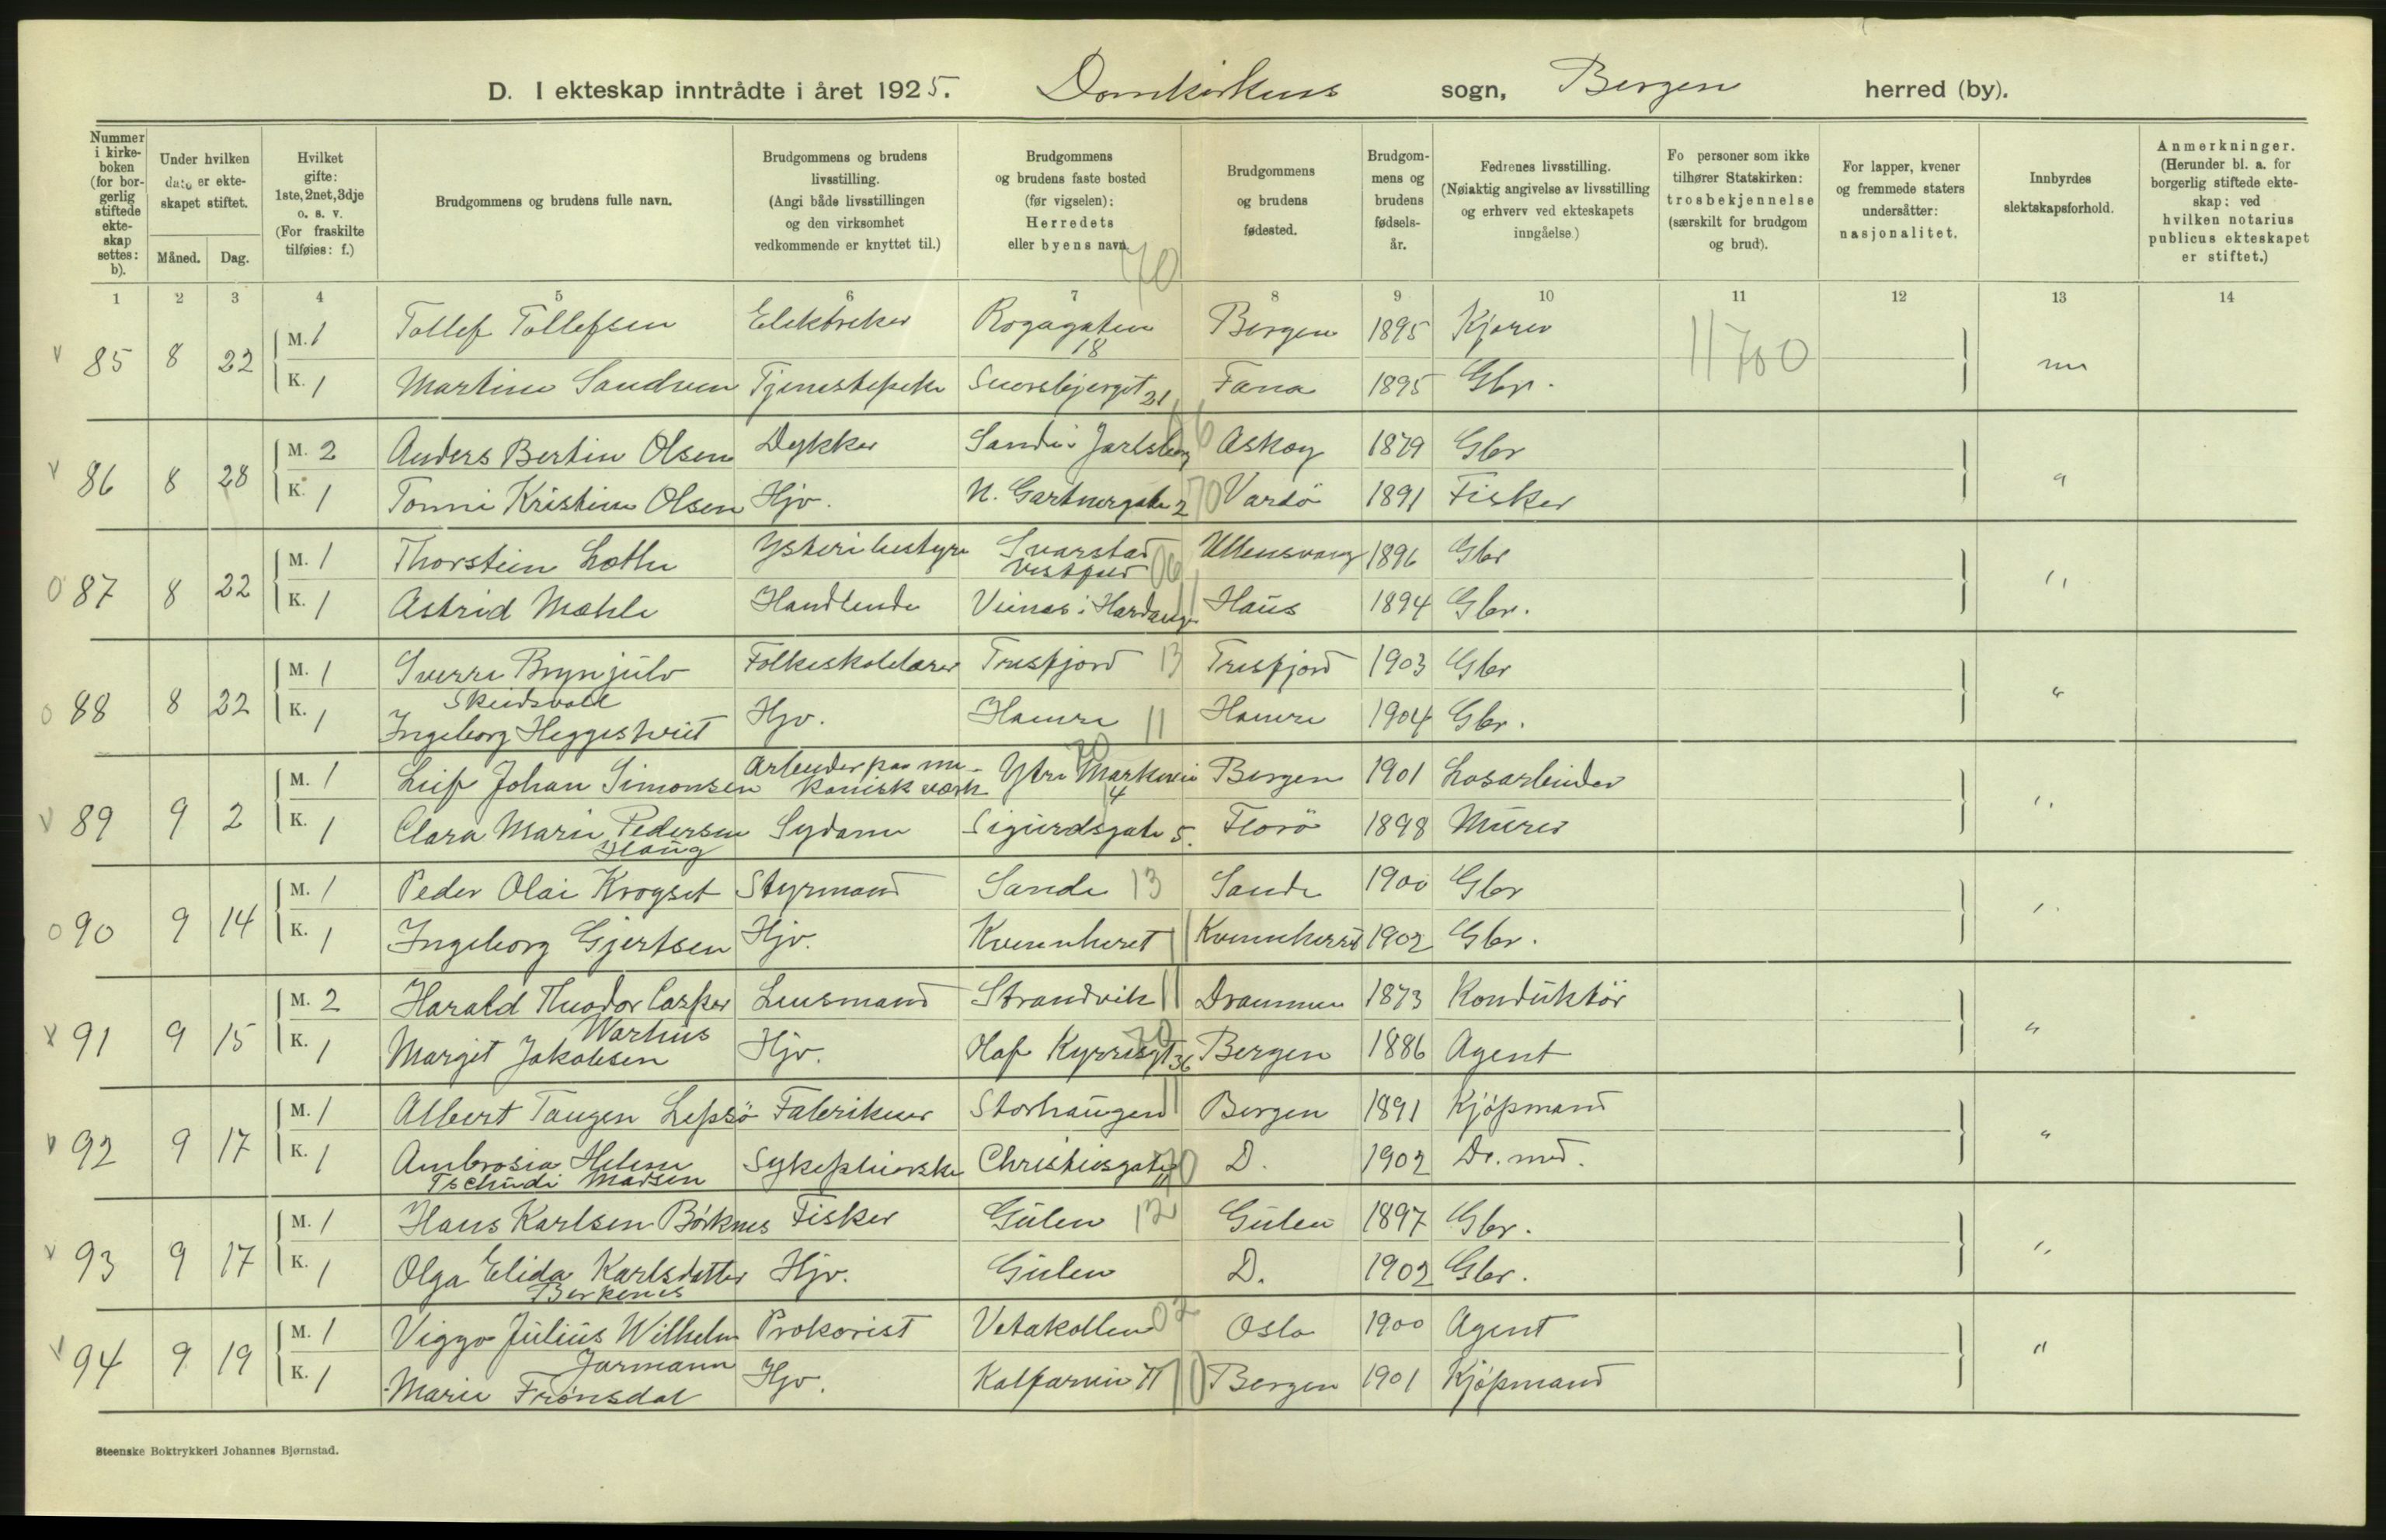 D. I ekteskap inntrådte i året 1925. Domkirkens sogn, Bergen herred (by).
Nummer i kirkeboken (for borgerlig stiftede ekteskap settes: b).
Under hvilken dato er ekteskapet stiftet.
Måned. Dag.
Hvilket gifte: 1ste, 2net, 3dje o. s. v. (For fraskilte tilføies: f.)
Brudgommens og brudens fulle navn.
Brudgommens og brudens livsstilling. (Angi både livsstillingen og den virksomhet vedkommende er knyttet til.)
Brudgommens og brudens faste bosted (før vigselen): Herredets eller byens navn.
Brudgommens og brudens fødested.
Brudgommens og brudens fødselsår.
Fedrenes livsstilling. (Nøiaktig angivelse av livsstilling og erhverv ved ekteskapets inngåelse.)
Fo personer som ikke tilhører Statskirken: trosbekjennelse (særskilt for brudgom og brud).
For lapper, kvener og fremmede staters undersåtter: nasjonalitet.
Innbyrdes slektskapsforhold.
Anmerkninger. (Herunder bl. a. for borgerlig stiftede ekteskap: ved hvilken notarius publicus ekteskapet er stiftet.)
70
1 2 3 4 5 6 7 8 9 10 11 12 13 14
v 85 8 22 M. 1 Tollef Tollefsen Elektriker Rogagaten 18 Bergen 1895 Kjører 11700
K. 1 Martine Sandven Tjenestepike 21 Fana 1895 Gbr.
v 86 8 28 M. 2 Anders Bertin Olsen Dykker Sande i Jarlsberg 06 Askøy 1879 Gbr
K. 1 Tonni Kristine Olsen Hjv. N. Gartnergate 2 70 Vardö 1891 Fisker "
o 87 8 22 M. 1 Thorstein Lothe Ysteribestyrer Svarstad Vestfold 06 Ullensvang 1896 Gbr
K. 1 Astrid Mæhle Handlende Vinæs i Hardanger 11 Haus 1894 Gbr. "
o 88 8 22 M. 1 Sverre Brynjulv Skeidsvoll Folkeskolelærer Tresfjord 13 Tresfjord 1903 Gbr
K. 1 Ingeborg Heggestveit Hjv. Hamre 11 Hamre 1904 Gbr. "
v 89 9 2 M. 1 Leif Johan Simonsen Arbeider paa mekanisk værk Ytre Markevei 14 70 Bergen 1901 Løsarbeider
K. 1 Clara Marie Pedersen Haug Sydame Sigurdsgate 5. Florö 1898 Murer "
o 90 9 14 M. 1 Peder Olai Krogset Styrmand Sande 13 Sande 1900 Gbr
K. 1 Ingeborg Gjertsen Hjv. Kvinnheret 11 Kvinnherred 1902 Gbr. "
v 91 9 15 M. 2 Harald Theodor Casper Warhus Lensmand Strandvik 11 Drammen 1873 Konduktör
K. 1 Margit Jakobsen Hjv. Olaf Kyrresgt 36 70 Bergen 1886 Agent "
v 92 9 17 M. 1 Albert Tangen Lepsö Fabrikeier Storhaugen 11 Bergen 1891 Kjøpmand
K. 1 Ambrosia Helene Tschudi Madsen Sykepleierske Christiesgate 11 70 D. 1902 Dr. med. "
v 93 9 17 M. 1 Hans Karlsen Børknes Fisker Gulen 12 Gulen 1897 Gbr.
K. 1 Olga Elida Karlsdatter Berkenes Hjv. Gulen D. 1902 Gbr. "
v 94 9 19 M. 1 Viggo Julius Wilhelm Jarmann Prokorist Vetakollen 02 Oslo 1900 Agent
K. 1 Marie Frønsdal Hjv. Kalfarvei 71 70 Bergen 1901 Kjøpmand "
Steenske Boktrykkeri Johannes Bjørnstad.